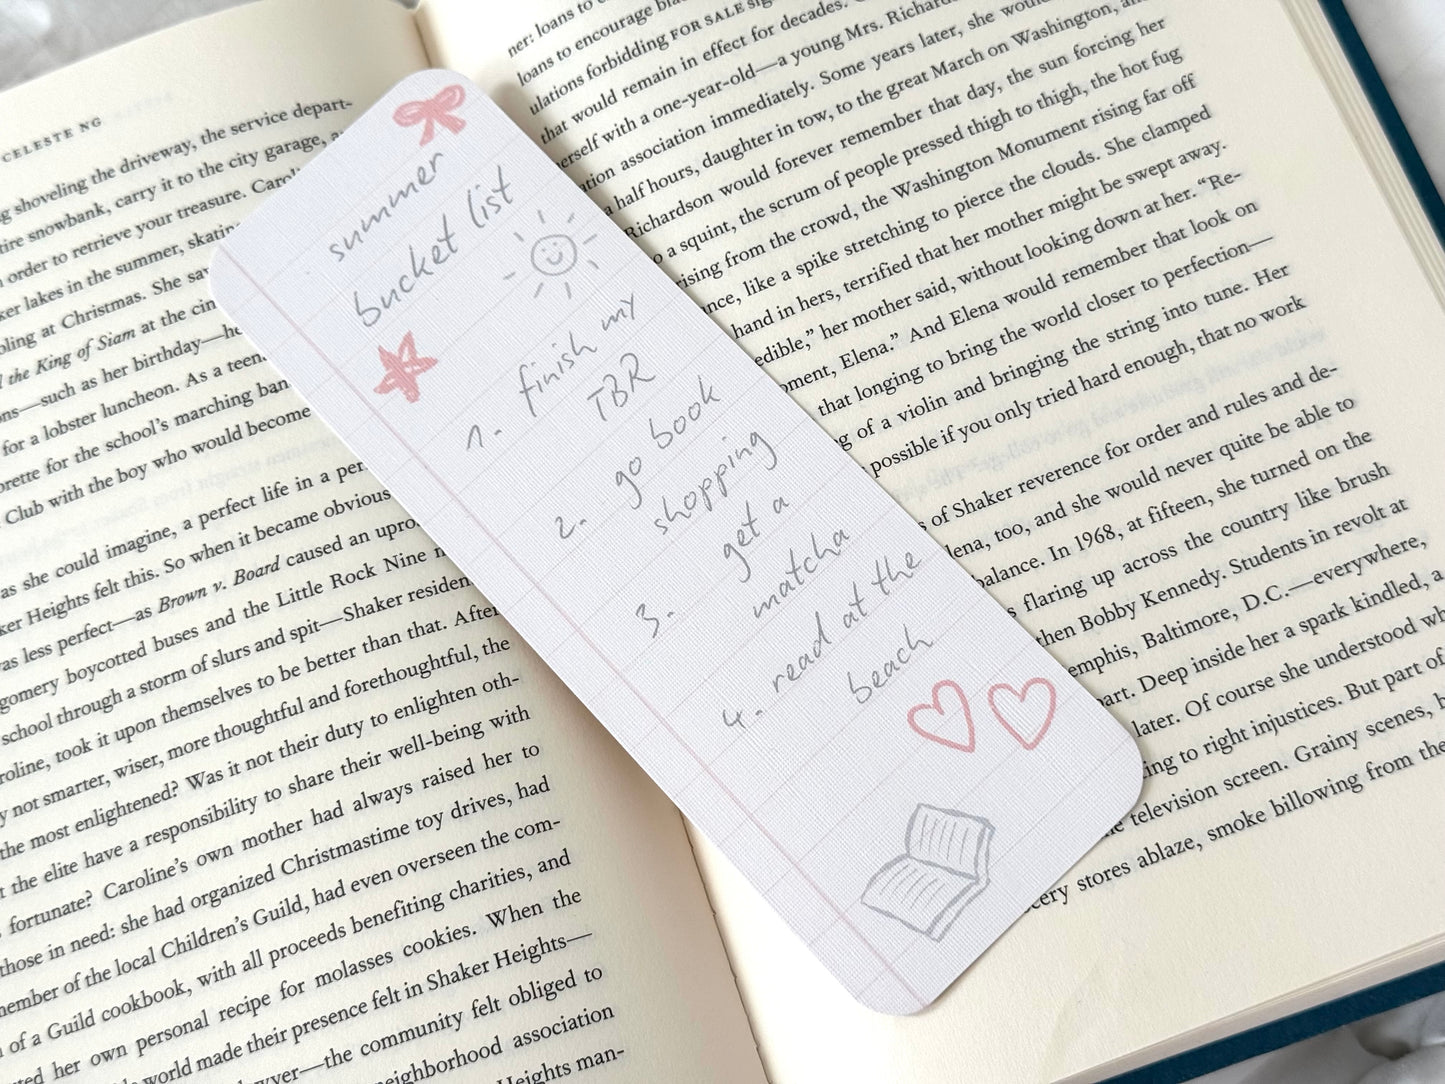 CELESTE NG
shoveling the driveway, the service depart-
snowbank, carry it to the city garage,
order to retrieve your treasure.
lakes in the summer,
at Christmas. She
the King of Siam at the
such as her birthday—
for a lobster luncheon. As a
for the school's marching
Club with the boy who would become
as she could imagine, a perfect life in a
Heights felt this. So when it became obvious
less perfect—as Brown v. Board caused an
boycotted buses and the Little Rock Nine
school through a storm of slurs and spit—Shaker
took it upon themselves to be better than that. After
smarter, wiser, more thoughtful and forethoughtful, the
the most enlightened? Was it not their duty to enlighten oth-
the elite have a responsibility to share their well-being with
fortunate? Caroline's own mother had always raised her to
those in need: she had organized Christmastime toy drives, had
member of the local Children's Guild, had even overseen the com-
of a Guild cookbook, with all proceeds benefiting charities, and
her own personal recipe for molasses cookies. When the
world made their presence felt in Shaker Heights—
the community felt obliged to
neighborhood association
Heights man-
summer
bucket list
1. finish my
TBR
2. go book
shopping
3. get a
matcha
4. read at the
beach
ner: loans to
loans to encourage
ulations forbidding FOR SALE
that would remain in effect for decades.
herself with a one-year-old—a young Mrs.
association immediately. Some years later, she
a half hours, daughter in tow, to the great March on Washington,
Richardson would forever remember that day, the sun forcing her
to a squint, the scrum of people pressed thigh to thigh, the hot fug
rising from the crowd, the Washington Monument rising far off
like a spike stretching to pierce the clouds. She clamped
hand in hers, terrified that her mother might be swept away.
her mother said, without looking down at her. “Re-
Elena.” And Elena would remember that look on
that longing to bring the world closer to perfection—
of a violin and bringing the string into tune. Her
possible if you only tried hard enough, that no work
of Shaker reverence for order and rules and de-
too, and she would never quite be able to
balance. In 1968, at fifteen, she turned on the
flaring up across the country like brush
then Bobby Kennedy. Students in revolt at
Baltimore, D.C.—everywhere,
Deep inside her a spark kindled, a
later. Of course she understood
to right injustices. But part of
television screen. Grainy scenes,
stores ablaze, smoke billowing from the